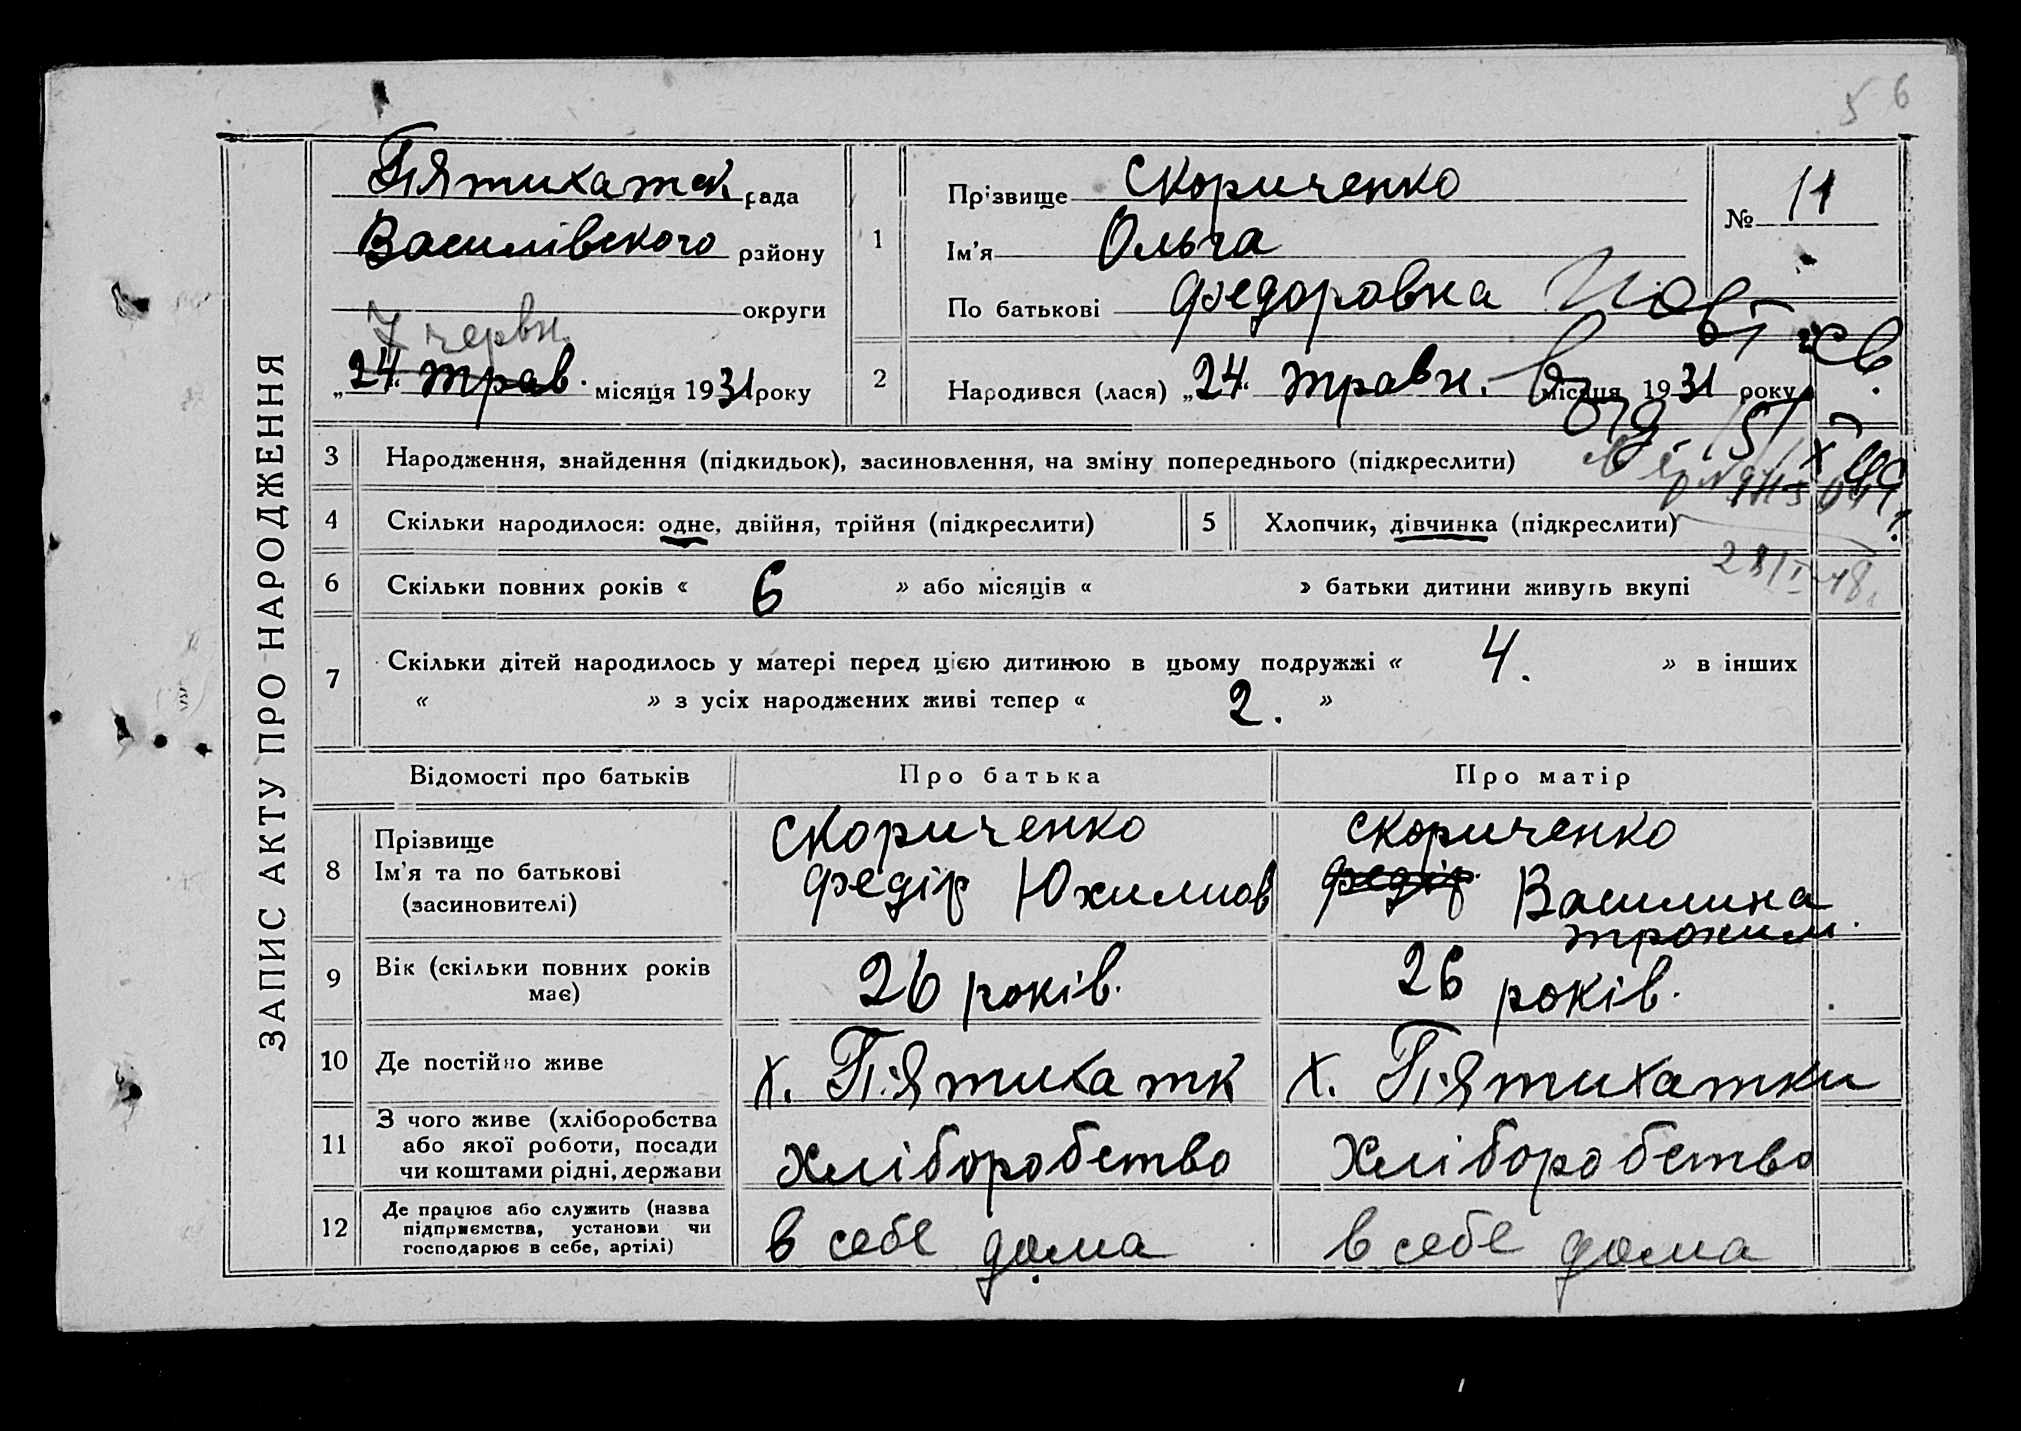 5 6
ЗАПИС АКТУ ПРО НАРОДЖЕННЯ
Пятихатск рада
Василівського району
округи
7 червн.
„24“ трав. місяця 1931 року
1
Прізвище Скориченко
Ім'я Ольга
По батькові Федоровна
№ 11
2
Народився (лася) „24“ травн. місяця 1931 року
3 Народження, знайдення (підкидьок), засиновлення, на зміну попереднього (підкреслити)
4 Скільки народилося: одне, двійня, трійня (підкреслити) 5 Хлопчик, дівчинка (підкреслити)
28/I-48.
6 Скільки повних років « 6 » або місяців « » батьки дитини живуть вкупі
7 Скільки дітей народилось у матері перед цією дитиною в цьому подружжі « 4. » в інших
« » з усіх народжених живі тепер « 2. »
Відомості про батьків Про батька Про матір
8 Прізвище
Ім'я та по батькові
(засиновителі)
Скориченко
Федір Юхимов
Скориченко
Федір Василина
Трохим.
9 Вік (скільки повних років
має)
26 років.
26 років.
10 Де постійно живе х. П'ятихатк х. П'ятихатки
11 З чого живе (хліборобства
або якої роботи, посади
чи коштами рідні, держави
Хліборобство
Хліборобство
12 Де працює або служить (назва
підприємства, установи чи
господарює в себе, артілі)
в себе дома
в себе дома